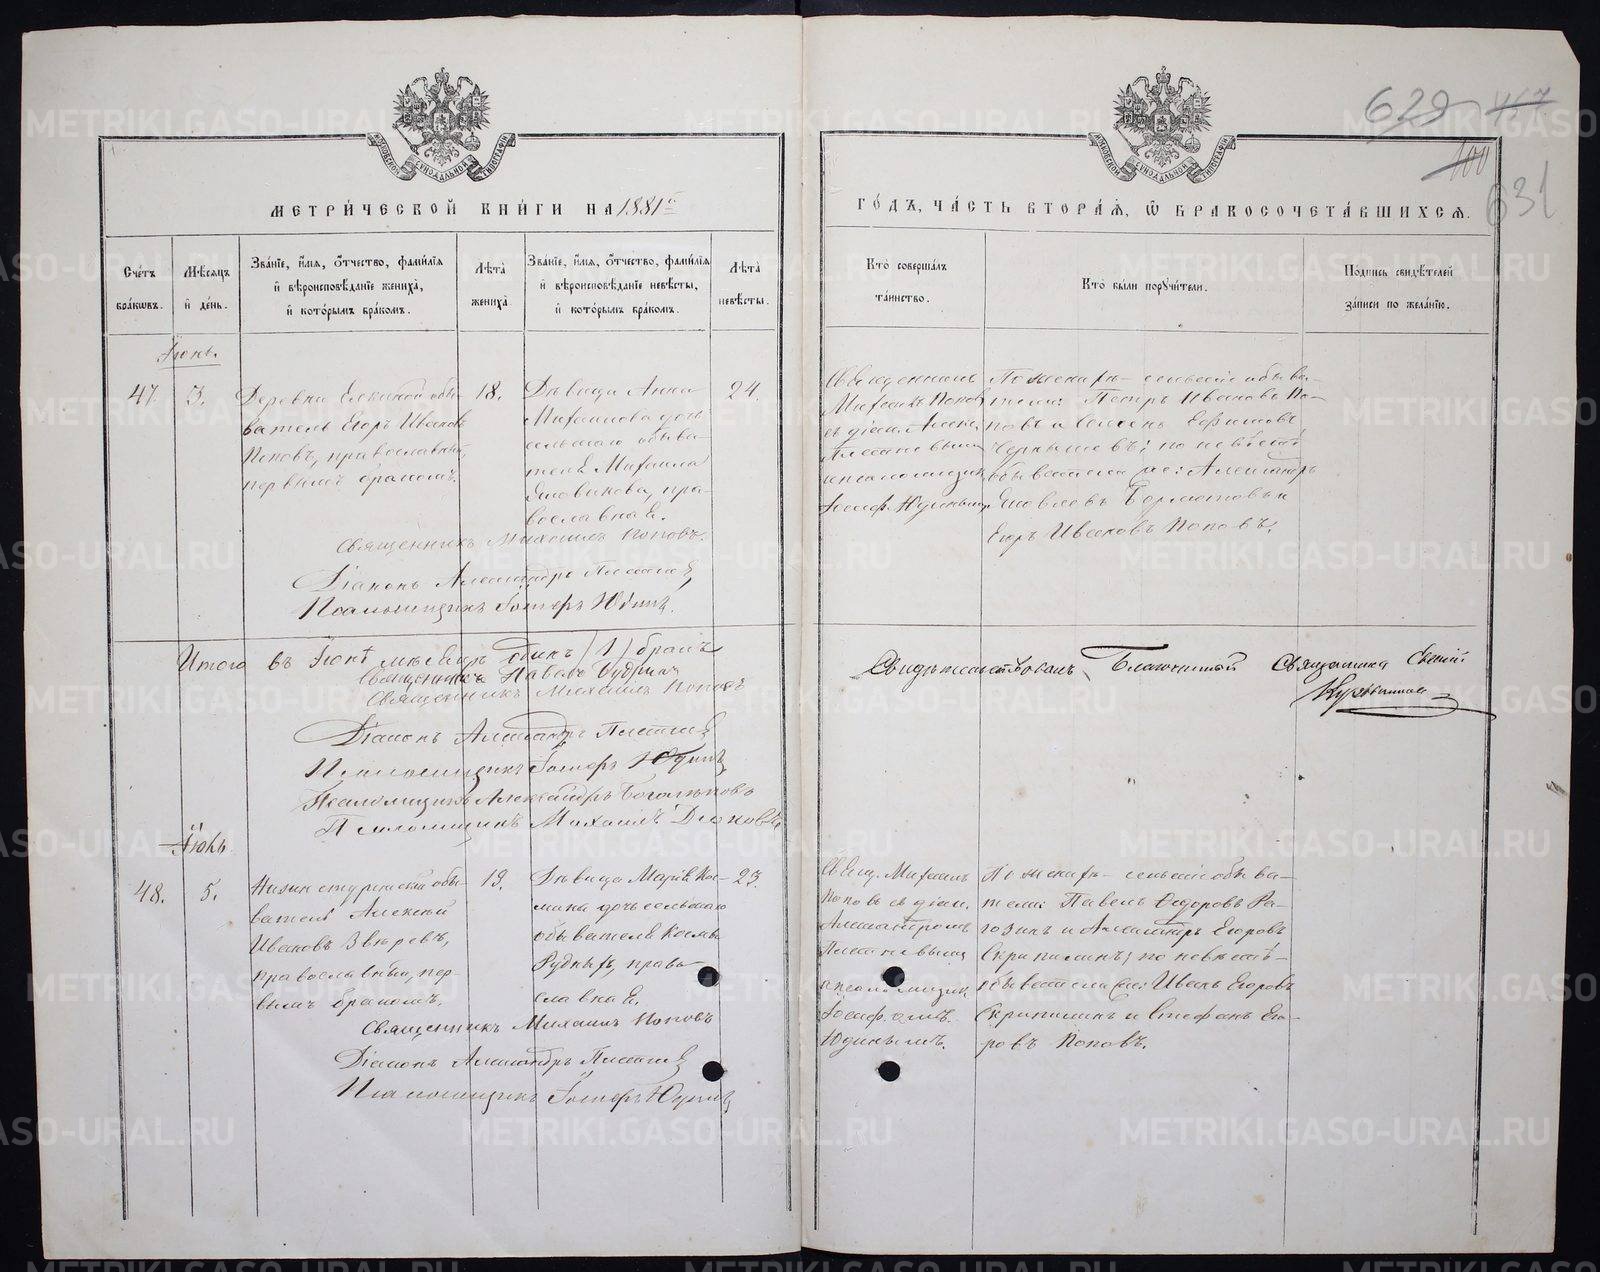 629 467
100
631
МОСКОВСКОЙ СѴНОДАЛЬНОЙ ТИПОГРАФІИ
МОСКОВСКОЙ СѴНОДАЛЬНОЙ ТИПОГРАФІИ
МЕТРИ́ЧЕСКОЙ КНИ́ГИ НА 1881й
ГО́ДЪ, ЧА́СТЬ ВТОРА́Ѧ, Ѽ БРАКОСОЧЕТА́ВШИХСѦ.
Сче́тъ бра́кѡвъ.
Мѣ́сѧцъ и́ де́нь.
Зва́нїе, и́мѧ, ѻ҆́тчество, фами́лїѧ и́ вѣроисповѣ́данїе жениха̀, и́ кото́рымъ бра́комъ.
Лѣ́та̀ жениха̀
Зва́нїе, и́мѧ, ѻ҆́тчество, фами́лїѧ и́ вѣроисповѣ́данїе невѣ́сты, и́ кото́рымъ бра́комъ.
Лѣ́та̀ невѣ́сты.
Кто̀ соверша́лъ та́инство.
Кто̀ бы́ли порꙋчи́тели.
По́дпись свидѣ́телей за́писи по жела́нїю.
Іюнь.
47. 3.
Деревни Елкиной обы-
ватель Егоръ Ивановъ
Поповъ, православный,
первымъ бракомъ.
18.
Дѣвица Анна
Михаилова дочь
сельскаго обыва-
теля Михаила
Яковикова, пра-
вославная.
24.
Священникъ
Михаилъ Поповъ
съ діак. Алекс.
и псаломщик.
Іосиф. Юдинымъ.
По женихѣ — сельскіе обыва-
тели: Петръ Ивановъ По-
повъ и Семенъ Ефимовъ
Чернышевъ; по невѣстѣ
обыватели же: Александръ
Яковлевъ Бормотовъ и
Егоръ Ивановъ Поповъ.
Священникъ Михаилъ Поповъ.
Діаконъ Александръ
Псаломщикъ Іосифъ Юдинъ.
Итого въ Іюнѣ мѣсяцѣ одинъ (1) бракъ
Священникъ Павелъ Рудинъ
Священникъ Михаилъ Поповъ
Діаконъ Александръ
Псаломщикъ Іосифъ Юдинъ
Псаломщикъ Александръ Богомоловъ
Псаломщикъ Михаилъ
Свидѣтельствовалъ, Благочинный Священникъ
Іюль
48. 5.
Нижнетуринскій обы-
ватель Алексѣй
Ивановъ Звѣревъ,
православный, пер-
вымъ бракомъ.
19.
Дѣвица Марія Ко-
мина дочь сельскаго
обывателя Космы
Рудныхъ, право-
славная.
23.
Свящ. Михаилъ
Поповъ съ діак.
Александромъ
и псаломщик.
Іосифомъ
Юдинымъ.
По женихѣ — сельскіе обыва-
тели: Павелъ Ѳедоровъ Ра-
гозинъ и Александръ Егоровъ
Скрипинъ; по невѣстѣ —
обыватели же: Иванъ Егоровъ
Скрипинъ и Стефанъ Его-
ровъ Поповъ.
Священникъ Михаилъ Поповъ
Діаконъ Александръ
Псаломщикъ Іосифъ Юдинъ
METRIKI.GASO-URAL.RU